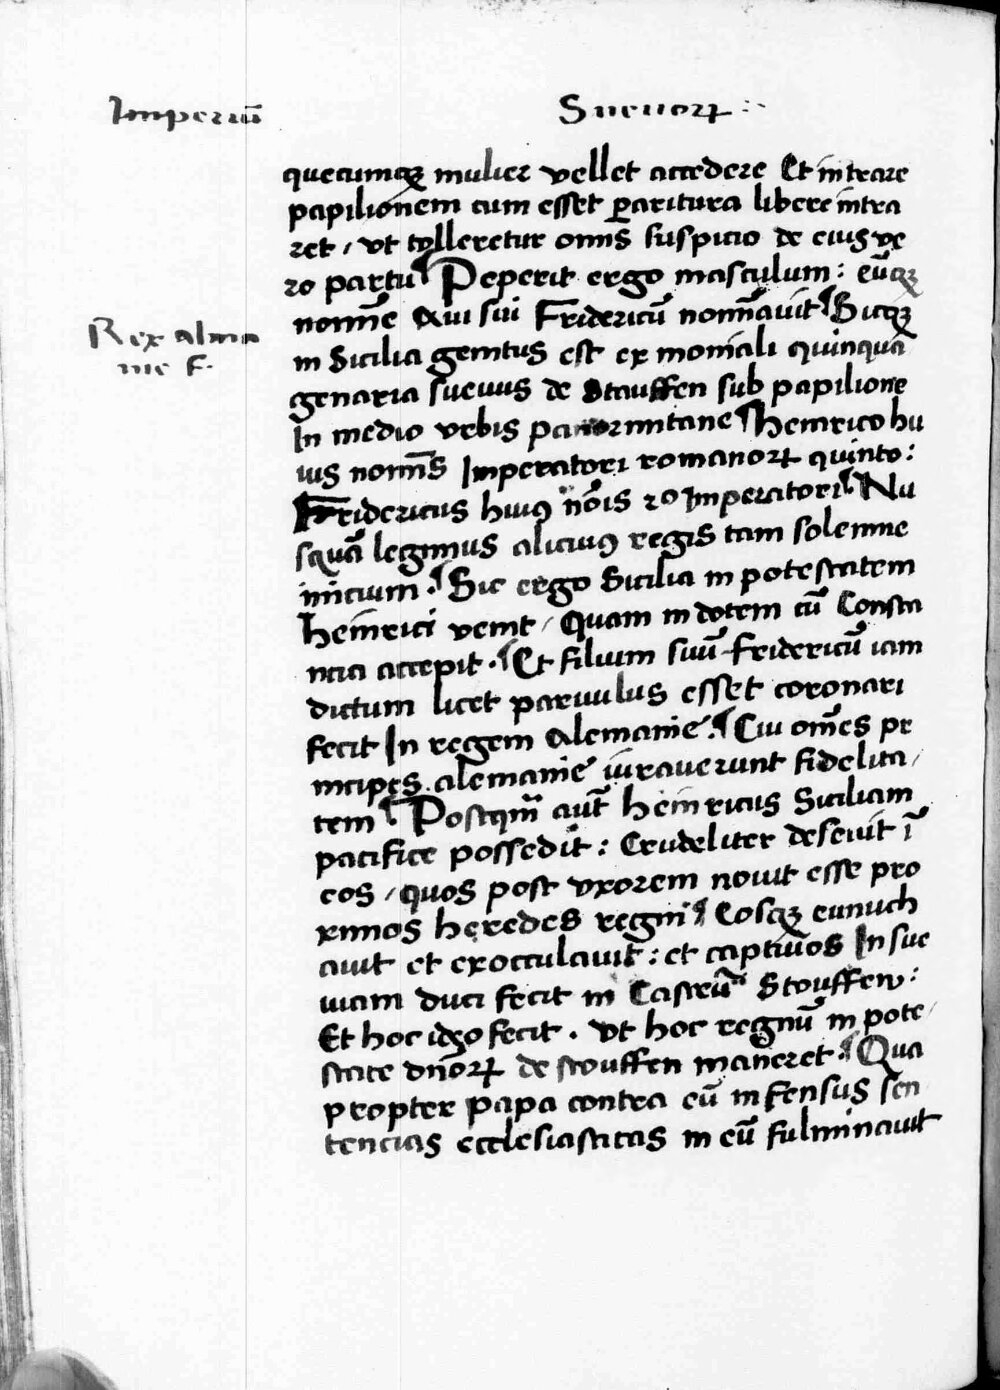 Imperiū Sueuorꝝ
quecumqꝫ mulier vellet accedere Et intrare
papilionem cum esset paritura libere intra
ret / vt tolleretur omīs suspicio de eius ve
ro partu ¶ Peperit ergo masculum : eūqꝫ
Rex alma
nie F.
nomīe Aui sui Fridericū nomīauit ¶ Sicqꝫ
in Sicilia genitus est ex moniali quinqua
genaria sueuus de Stauffen sub papilione
In medio vrbis panormitane ¶ Heinrico hu
ius nomīs Imperatori romanorꝝ quinto :
Fridericus huiꝰ nōis ro Imperatori ¶ Nu
squā legimus alicuiꝰ regis tam solemne
inicium . ¶ Sic ergo Sicilia in potestatem
Heinrici venit / Quam in dotem cū Consta
ncia accepit . ¶ Et filium suū Fridericū iam
dictum licet paruulus esset coronari
fecit In regem Alemanie . ¶ Cui omēs pr
incipes alemanie iurauerunt fidelita /
tem ¶ Postqm̄ aūt Heinricus Siciliam
pacifice possedit : Crudeliter deseuit ī
eos / quos post vxorem nouit esse pro
ximos heredes regni ¶ Eosqꝫ eunuch
auit et exocculauit : et captiuos In sue
uiam duci fecit in Castrū Stouffen :
Et hoc idꝫo fecit . vt hoc regnū in pote /
state dn̄orꝝ de stouffen maneret . ¶ Qua
propter papa contra eū infensus sen
tencias ecclesiasticas in eū fulminauit